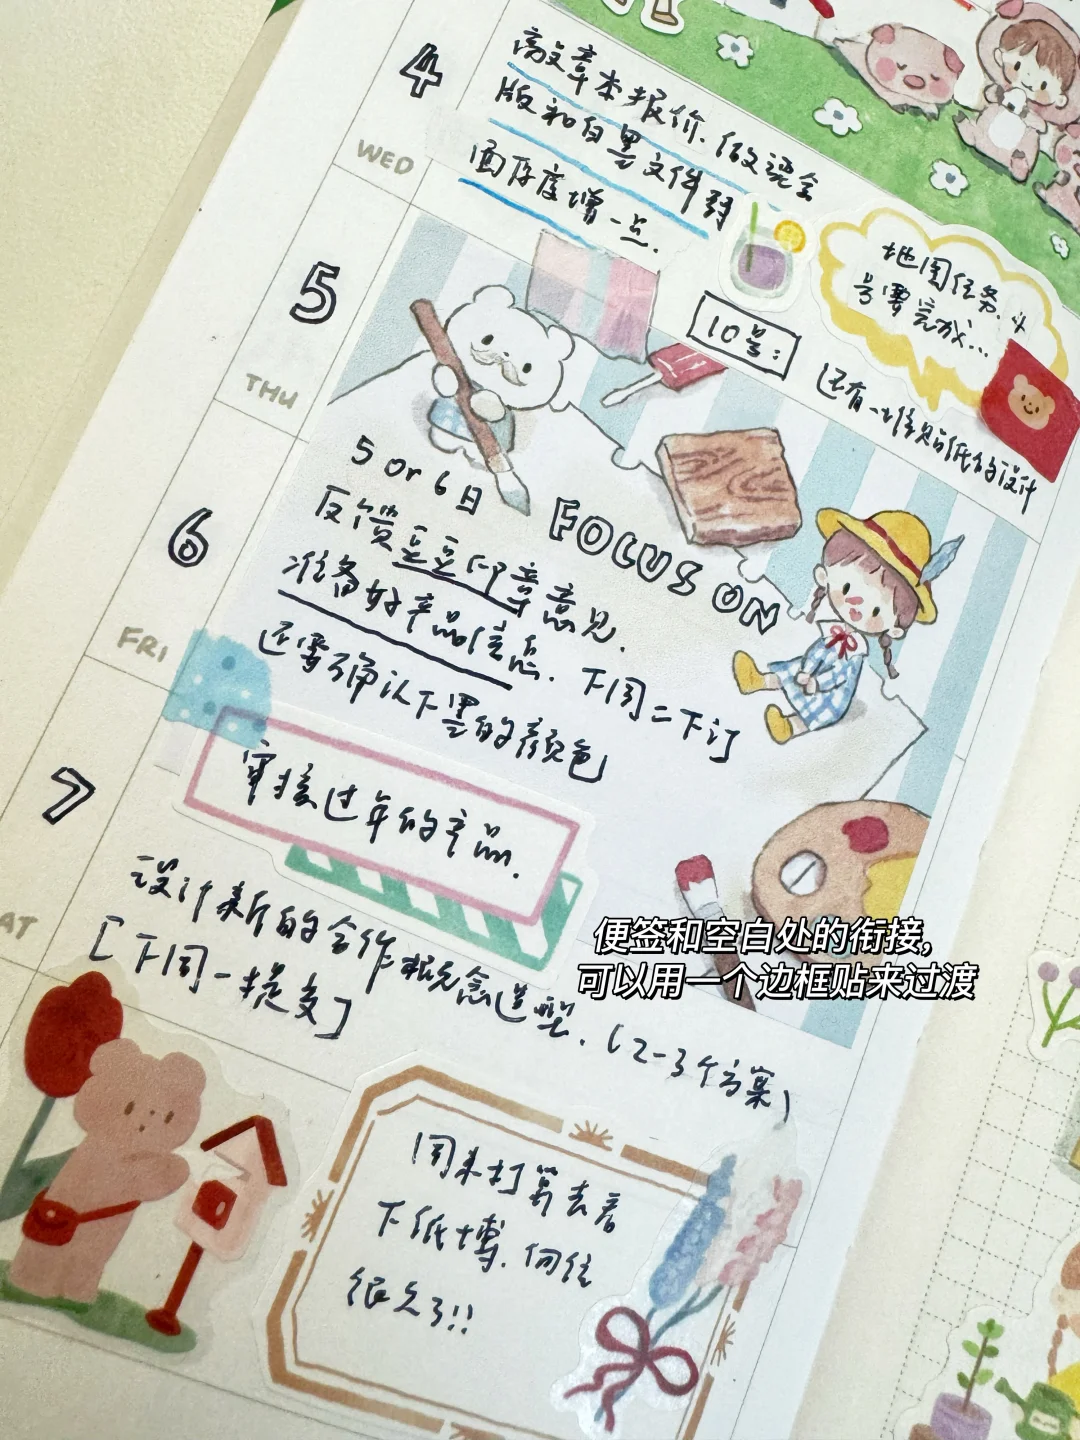 4
WED
高文章本报价.做烫金
版和白墨文件.
面厚度增一点.
地图任务.
号要完成...
5
THU
10号:
还有一堆贴纸的设计
5 or 6日
反馈豆豆印章意见.
准备好产品信息.下周二下订
还需确认下墨的颜色
FOCUS ON
6
FRI
审接过年的产品.
7
AT
设计新的合作概念造型.(2-3个方案)
[下周一提交]
便签和空白处的衔接,
可以用一个边框贴来过渡
周末打算去看
下纸博.向往
很久了!!